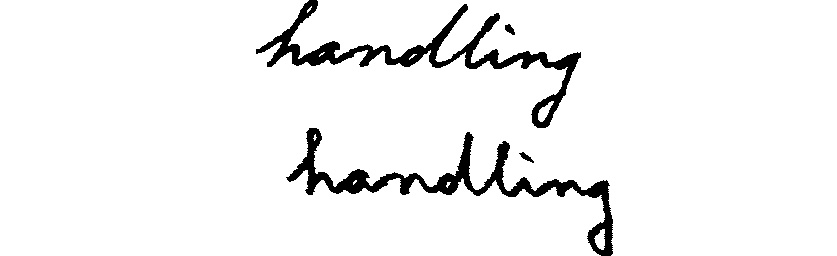 handling
handling